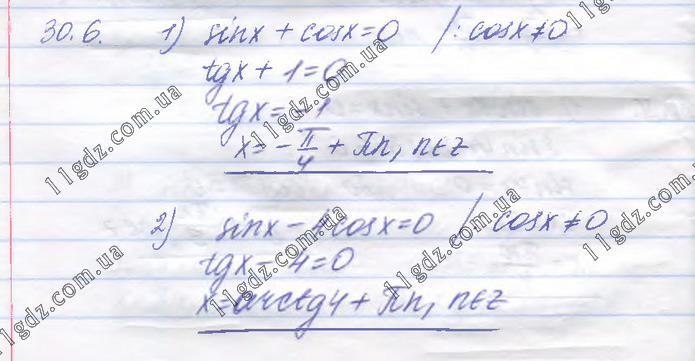 30.6. 1) sinx + cosx = 0 /: cosx ≠ 0
tgx + 1 = 0
tgx = -1
x = -π/4 + πn, n∈z
2) sinx - 4cosx = 0 /: cosx ≠ 0
tgx - 4 = 0
x = arctg4 + πn, n∈z
11gdz.com.ua
11gdz.com.ua
11gdz.com.ua
11gdz.com.ua
11gdz.com.ua
11gdz.com.ua
11gdz.com.ua